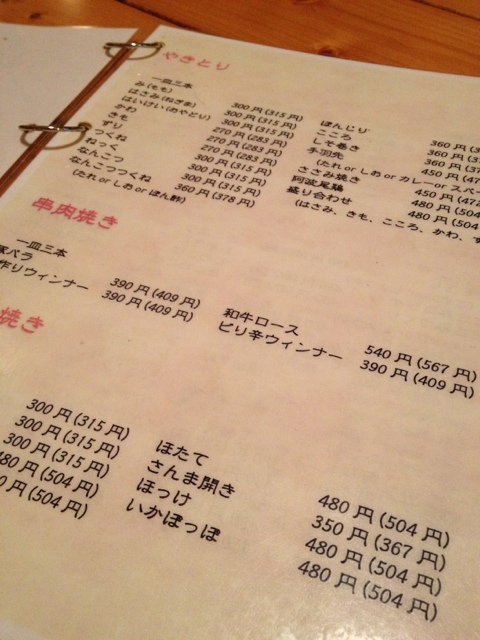 やきとり
一皿三本
み(もも) 300円(315円)
はさみ(ねぎま) 300円(315円)
はいけい(おやとり) 300円(315円)
かわ 270円(283円)
きも 270円(283円)
ずり 270円(283円)
つくね 300円(315円)
ねっく 300円(315円)
なんこつ 300円(315円)
なんこつつくね 360円(378円)
(たれ or しお or ぽん酢)
ぼんじり 360円
こころ 360円
しそ巻き 360円
手羽先 450円(47
(たれ or しお or カレー or スパ
ささみ焼き 450円(472
阿波尾鶏 480円(504
盛り合わせ 480円(504
(はさみ、きも、こころ、かわ、ず
串肉焼き
一皿三本
豚バラ 390円(409円)
作りウィンナー 390円(409円)
和牛ロース 540円(567円)
ピリ辛ウィンナー 390円(409円)
焼き
300円(315円)
300円(315円)
300円(315円)
480円(504円)
0円(504円)
ほたて 480円(504円)
さんま開き 350円(367円)
ほっけ 480円(504円)
いかぽっぽ 480円(504円)